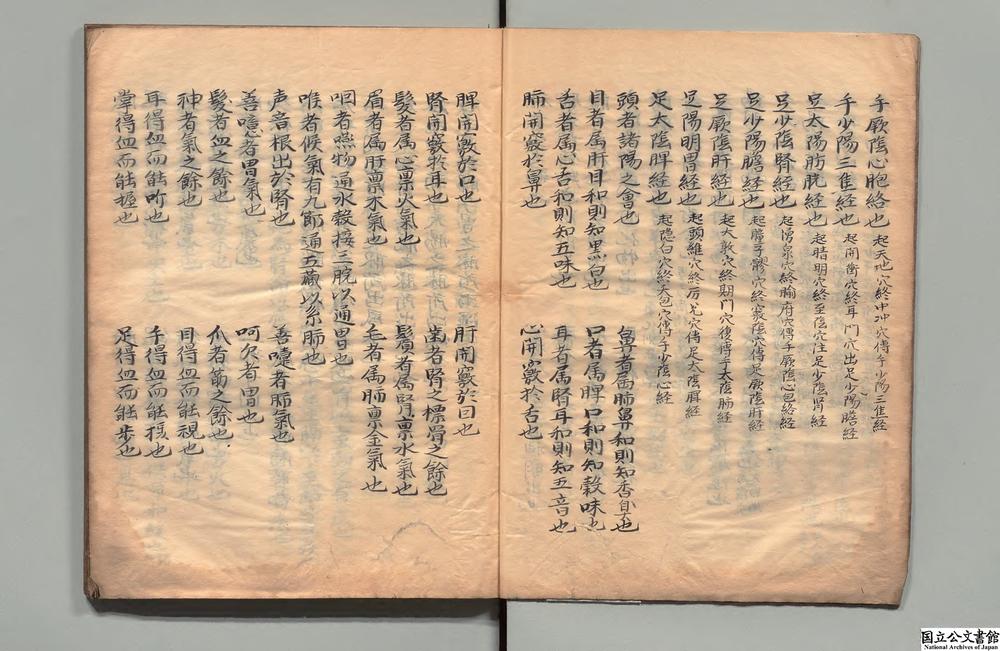 手厥陰心胞絡也 起天池穴終中冲穴傳手少陽三焦経
手少陽三焦経也 起関衝穴終耳門穴出足少陽膽経
足太陽膀胱経也 起睛明穴終至陰穴注足少陰腎経
足少陰腎経也 起湧泉穴終腧府穴傳手厥陰心包絡経
足少陽膽経也 起瞳子髎穴終竅陰穴傳足厥陰肝経
足厥陰肝経也 起大敦穴終期門穴復傳手太陰肺経
足陽明胃経也 起頭維穴終厉兌穴傳足太陰脾経
足太陰脾経也 起隠白穴終大包穴傳手少陰心経
頭者諸陽之會也 鼻者属肺鼻和則知香臭也
目者属肝目和則知黒白也 口者属脾口和則知穀味也
舌者属心舌和則知五味也 耳者属腎耳和則知五音也
肺開竅於鼻也 心開竅於舌也
脾開竅於口也 肝開竅於目也
腎開竅於耳也 歯者腎之標骨之餘也
髪者属心禀火氣也 鬚者属腎禀水氣也
眉者属肝禀木氣也 毛者属肺禀金氣也
咽者嚥物通水穀接三脘以通胃也
喉者候氣有九節通五蔵以系肺也
声音根出於腎也 善嚏者肺氣也
善噫者胃氣也 呵欠者胃也
髪者血之餘也 爪者筋之餘也
神者氣之餘也 目得血而能視也
耳得血而能听也 手得血而能摂也
掌得血而能握也 足得血而能歩也
国立公文書館
National Archives of Japan